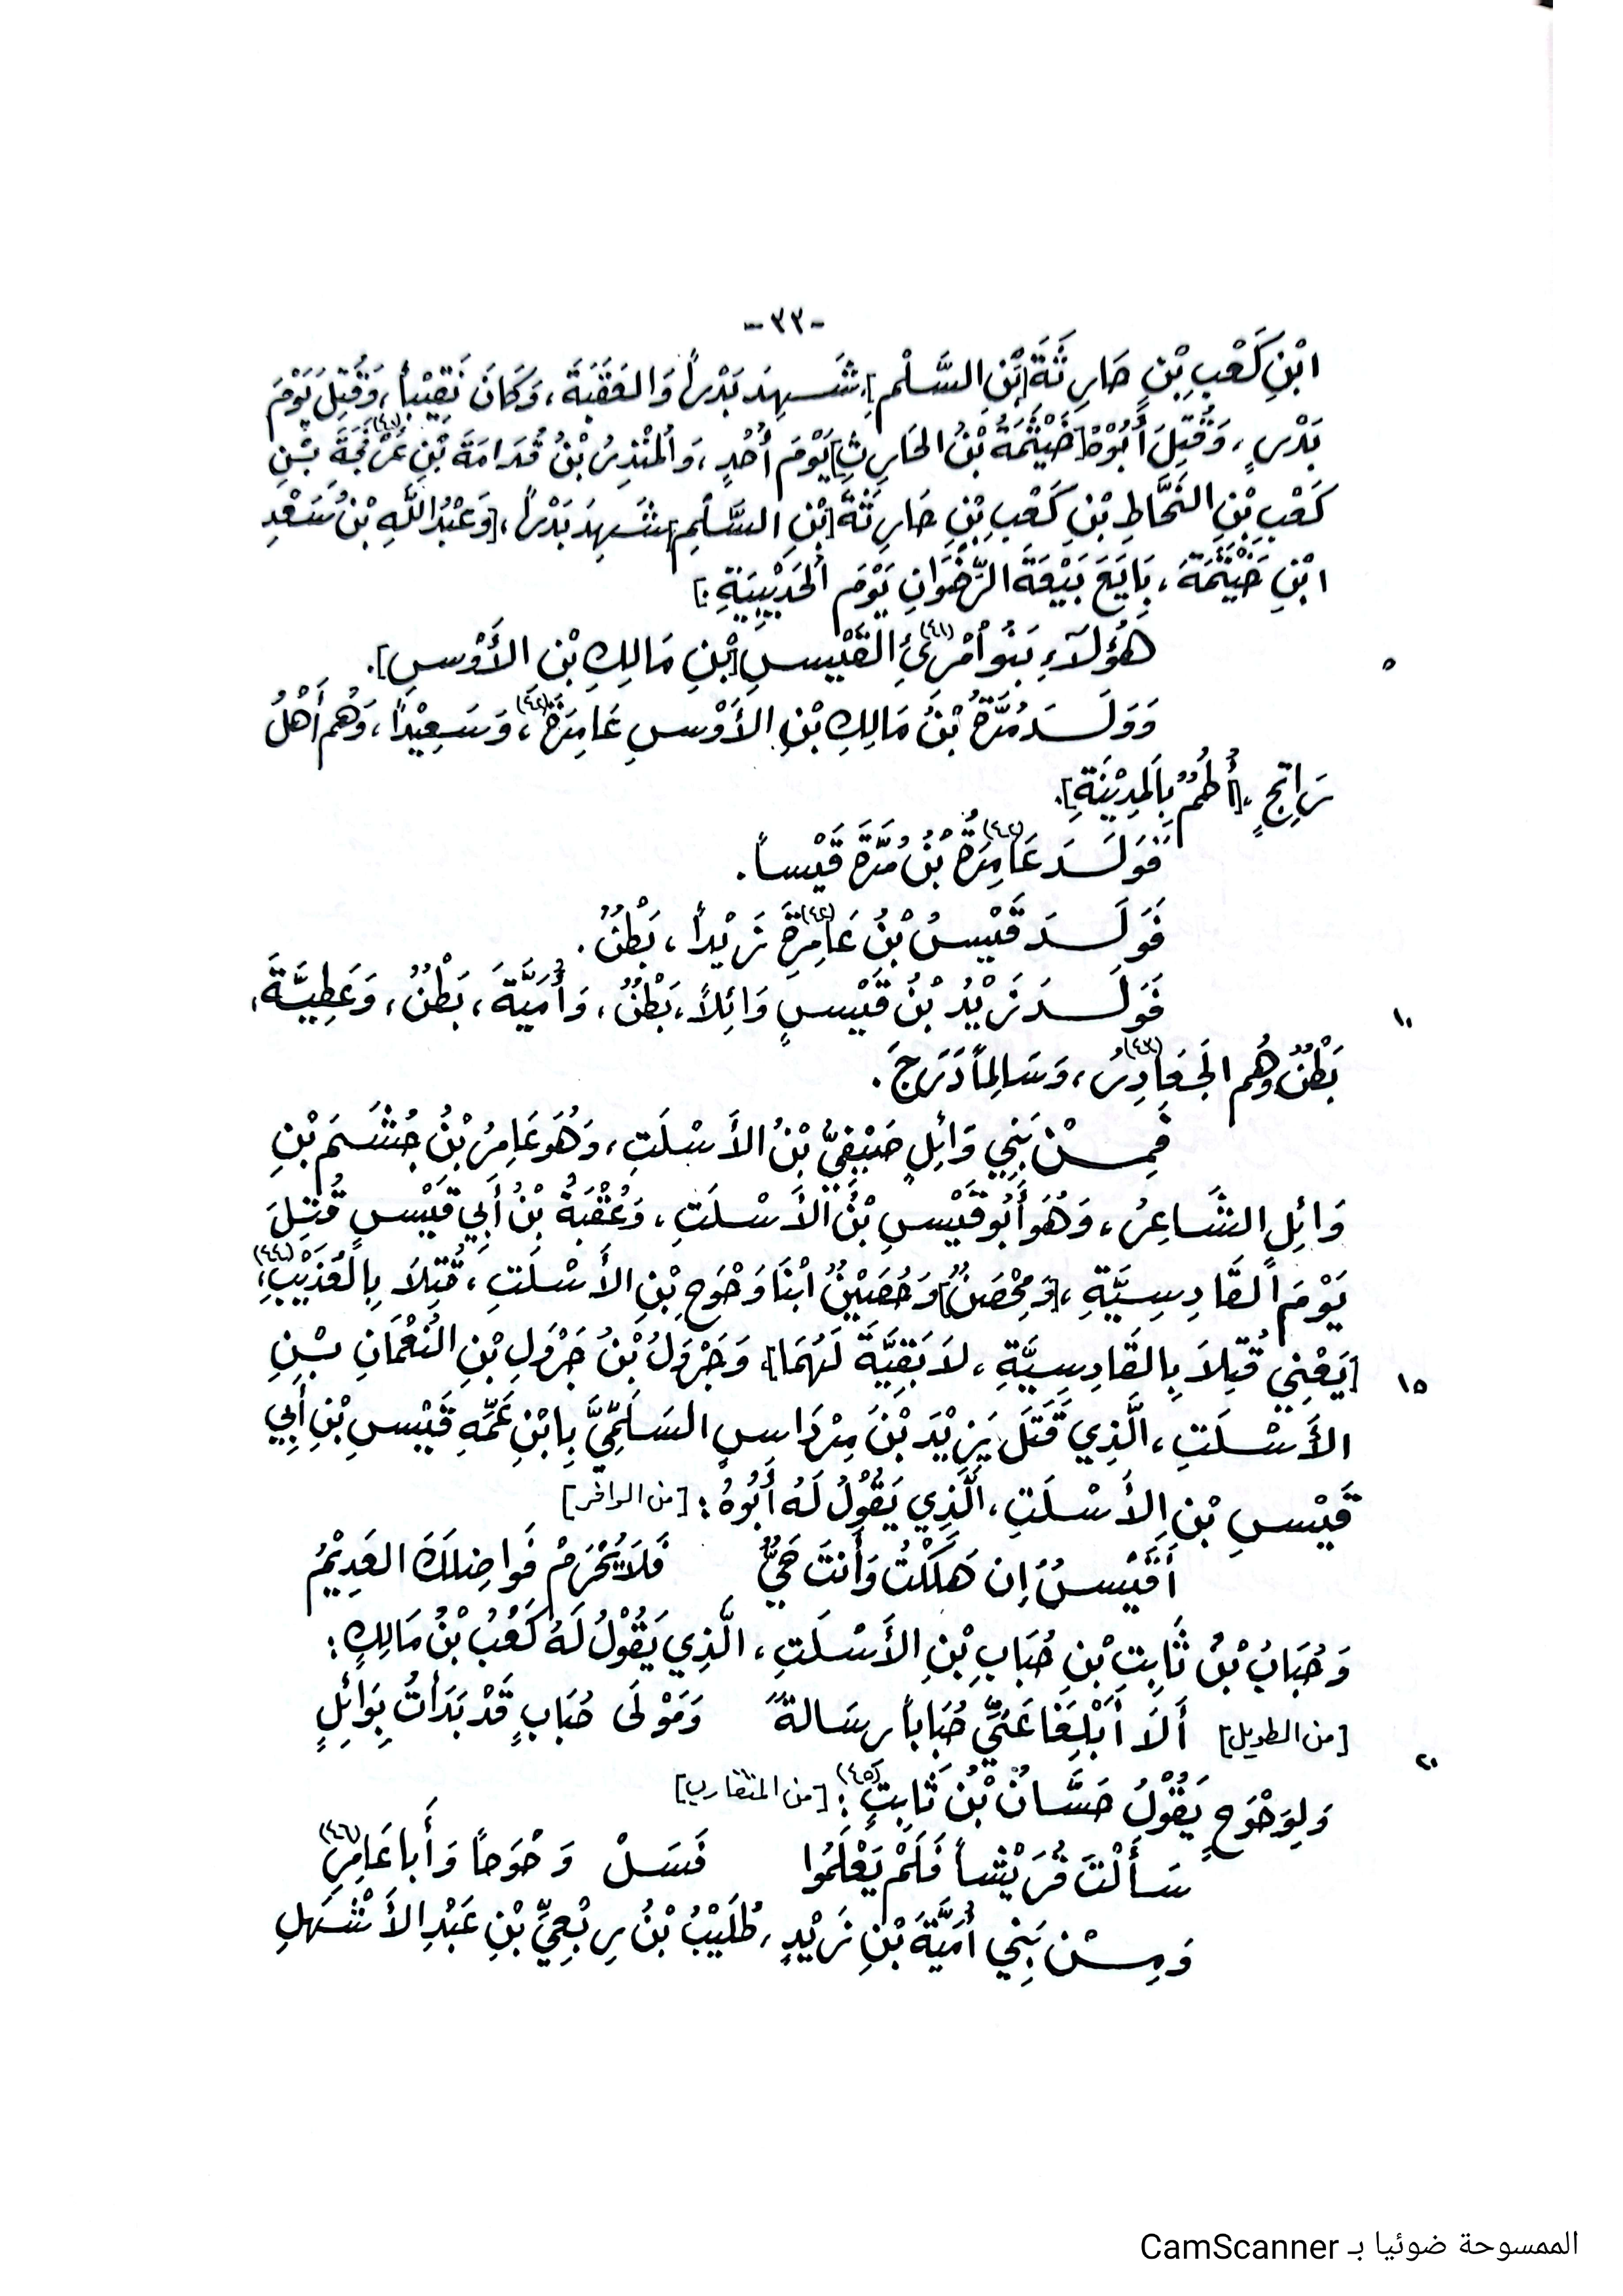 -٣٣-
ابْنِ كَعْبِ بْنِ حَارِثَةَ [بْنِ السَّلْمِ]، شَهِدَ بَدْراً وَالعَقَبَةَ، وَكَانَ نَقِيْباً، وَقُتِلَ يَوْمَ
بَدْرٍ، وَقُتِلَ أَبُوْهُ [خَيْثَمَةُ بْنُ الحَارِثِ] يَوْمَ أُحُدٍ، وَالمُنْذِرُ بْنُ قُدَامَةَ بْنِ عَرْفَجَةَ (٤٠) بْنِ
كَعْبِ بْنِ النَّحَّاطِ بْنِ كَعْبِ بْنِ حَارِثَةَ [بْنِ السَّلْمِ] شَهِدَ بَدْراً، [وَعَبْدُ اللَّهِ بْنُ سَعْدِ
ابْنِ خَيْثَمَةَ، بَايَعَ بَيْعَةَ الرِّضْوَانِ يَوْمَ الحُدَيْبِيَةِ.]
هَؤُلَآءِ بَنُو امْرِئِ (٤١) القَيْسِ [بْنِ مَالِكِ بْنِ الأَوْسِ].
٥
وَوَلَدَ مُرَّةُ بْنُ مَالِكِ بْنِ الأَوْسِ عَامِرَةَ (٤٢)، وَسَعِيْداً، وَهُم أَهْلُ
رَاتِجٍ، [أُطُمٌ بِالمَدِيْنَةِ].
فَوَلَدَ عَامِرَةُ (٤٢) بْنُ مُرَّةَ قَيْساً.
فَوَلَدَ قَيْسُ بْنُ عَامِرَةَ (٤٢) زَيْداً، بَطْنٌ.
فَوَلَدَ زَيْدُ بْنُ قَيْسٍ وَائِلاً، بَطْنٌ، وَأُمَيَّةَ، بَطْنٌ، وَعَطِيَّةَ،
١٠
بَطْنٌ وَهُم الجَعَادِرُ (٤٣)، وَسَالِماً دَرَجَ.
فَمِنْ بَنِي وَائِلٍ صَيْفِيُّ بْنُ الأَسْلَتِ، وَهُوَ عَامِرُ بْنُ جُشَمَ بْنِ
وَائِلٍ الشَّاعِرُ، وَهُوَ أَبُو قَيْسِ بْنُ الأَسْلَتِ، وَعُقْبَةُ بْنُ أَبِي قَيْسٍ قُتِلَ
يَوْمَ القَادِسِيَّةِ، [وَمِحْصَنٌ] وَحُصَيْنٌ ابْنَا وَحْوَحِ بْنِ الأَسْلَتِ، قُتِلَا بِالعُذَيْبِ (٤٤)،
[يَعْنِي قُتِلَا بِالقَادِسِيَّةِ، لَا بَقِيَّةَ لَهُمَا]، وَجَرْوَلُ بْنُ جَرْوَلِ بْنِ النُعْمَانِ بْنِ
١٥
الأَسْلَتِ، الَّذِي قَتَلَ يَزِيْدَ بْنَ مِرْدَاسٍ السَلَمِيَّ بِابْنِ عَمِّهِ قَيْسِ بْنِ أَبِي
قَيْسِ بْنِ الأَسْلَتِ، الَّذِي يَقُوْلُ لَهُ أَبُوْهُ: [من الوافر]
أَقَيْسُ إِن هَلَكْتُ وَأَنتَ حَيٌّ فَلَا يُحْرَمْ فَوَاضِلَكَ العَدِيْمُ
وَحُبَابُ بْنُ ثَابِتِ بْنِ حُبَابِ بْنِ الأَسْلَتِ، الَّذِي يَقُوْلُ لَهُ كَعْبُ بْنُ مَالِكٍ:
[من الطويل] أَلَا أَبْلِغَا عَنِّي حُبَاباً رِسَالةً وَمَوْلَى حُبَابٍ قَدْ بَدَأْتُ بِوَائِلٍ
٢٠
وَلِوَحْوَحٍ يَقُوْلُ حَسَّانُ بْنُ ثَابِتٍ (٤٥): [من المتقارب]
سَأَلْتَ قُرَيْشاً فَلَمْ يَعْلَمُوا فَسَلْ وَحْوَحاً وَأَبا عَامِرِ (٤٦)
وَمِنْ بَنِي أُمَيَّةَ بْنِ زَيْدٍ، طُلَيْبُ بْنُ رِبْعِيِّ بْنِ عَبْدِ الأَشْهَلِ
الممسوحة ضوئيا بـ CamScanner